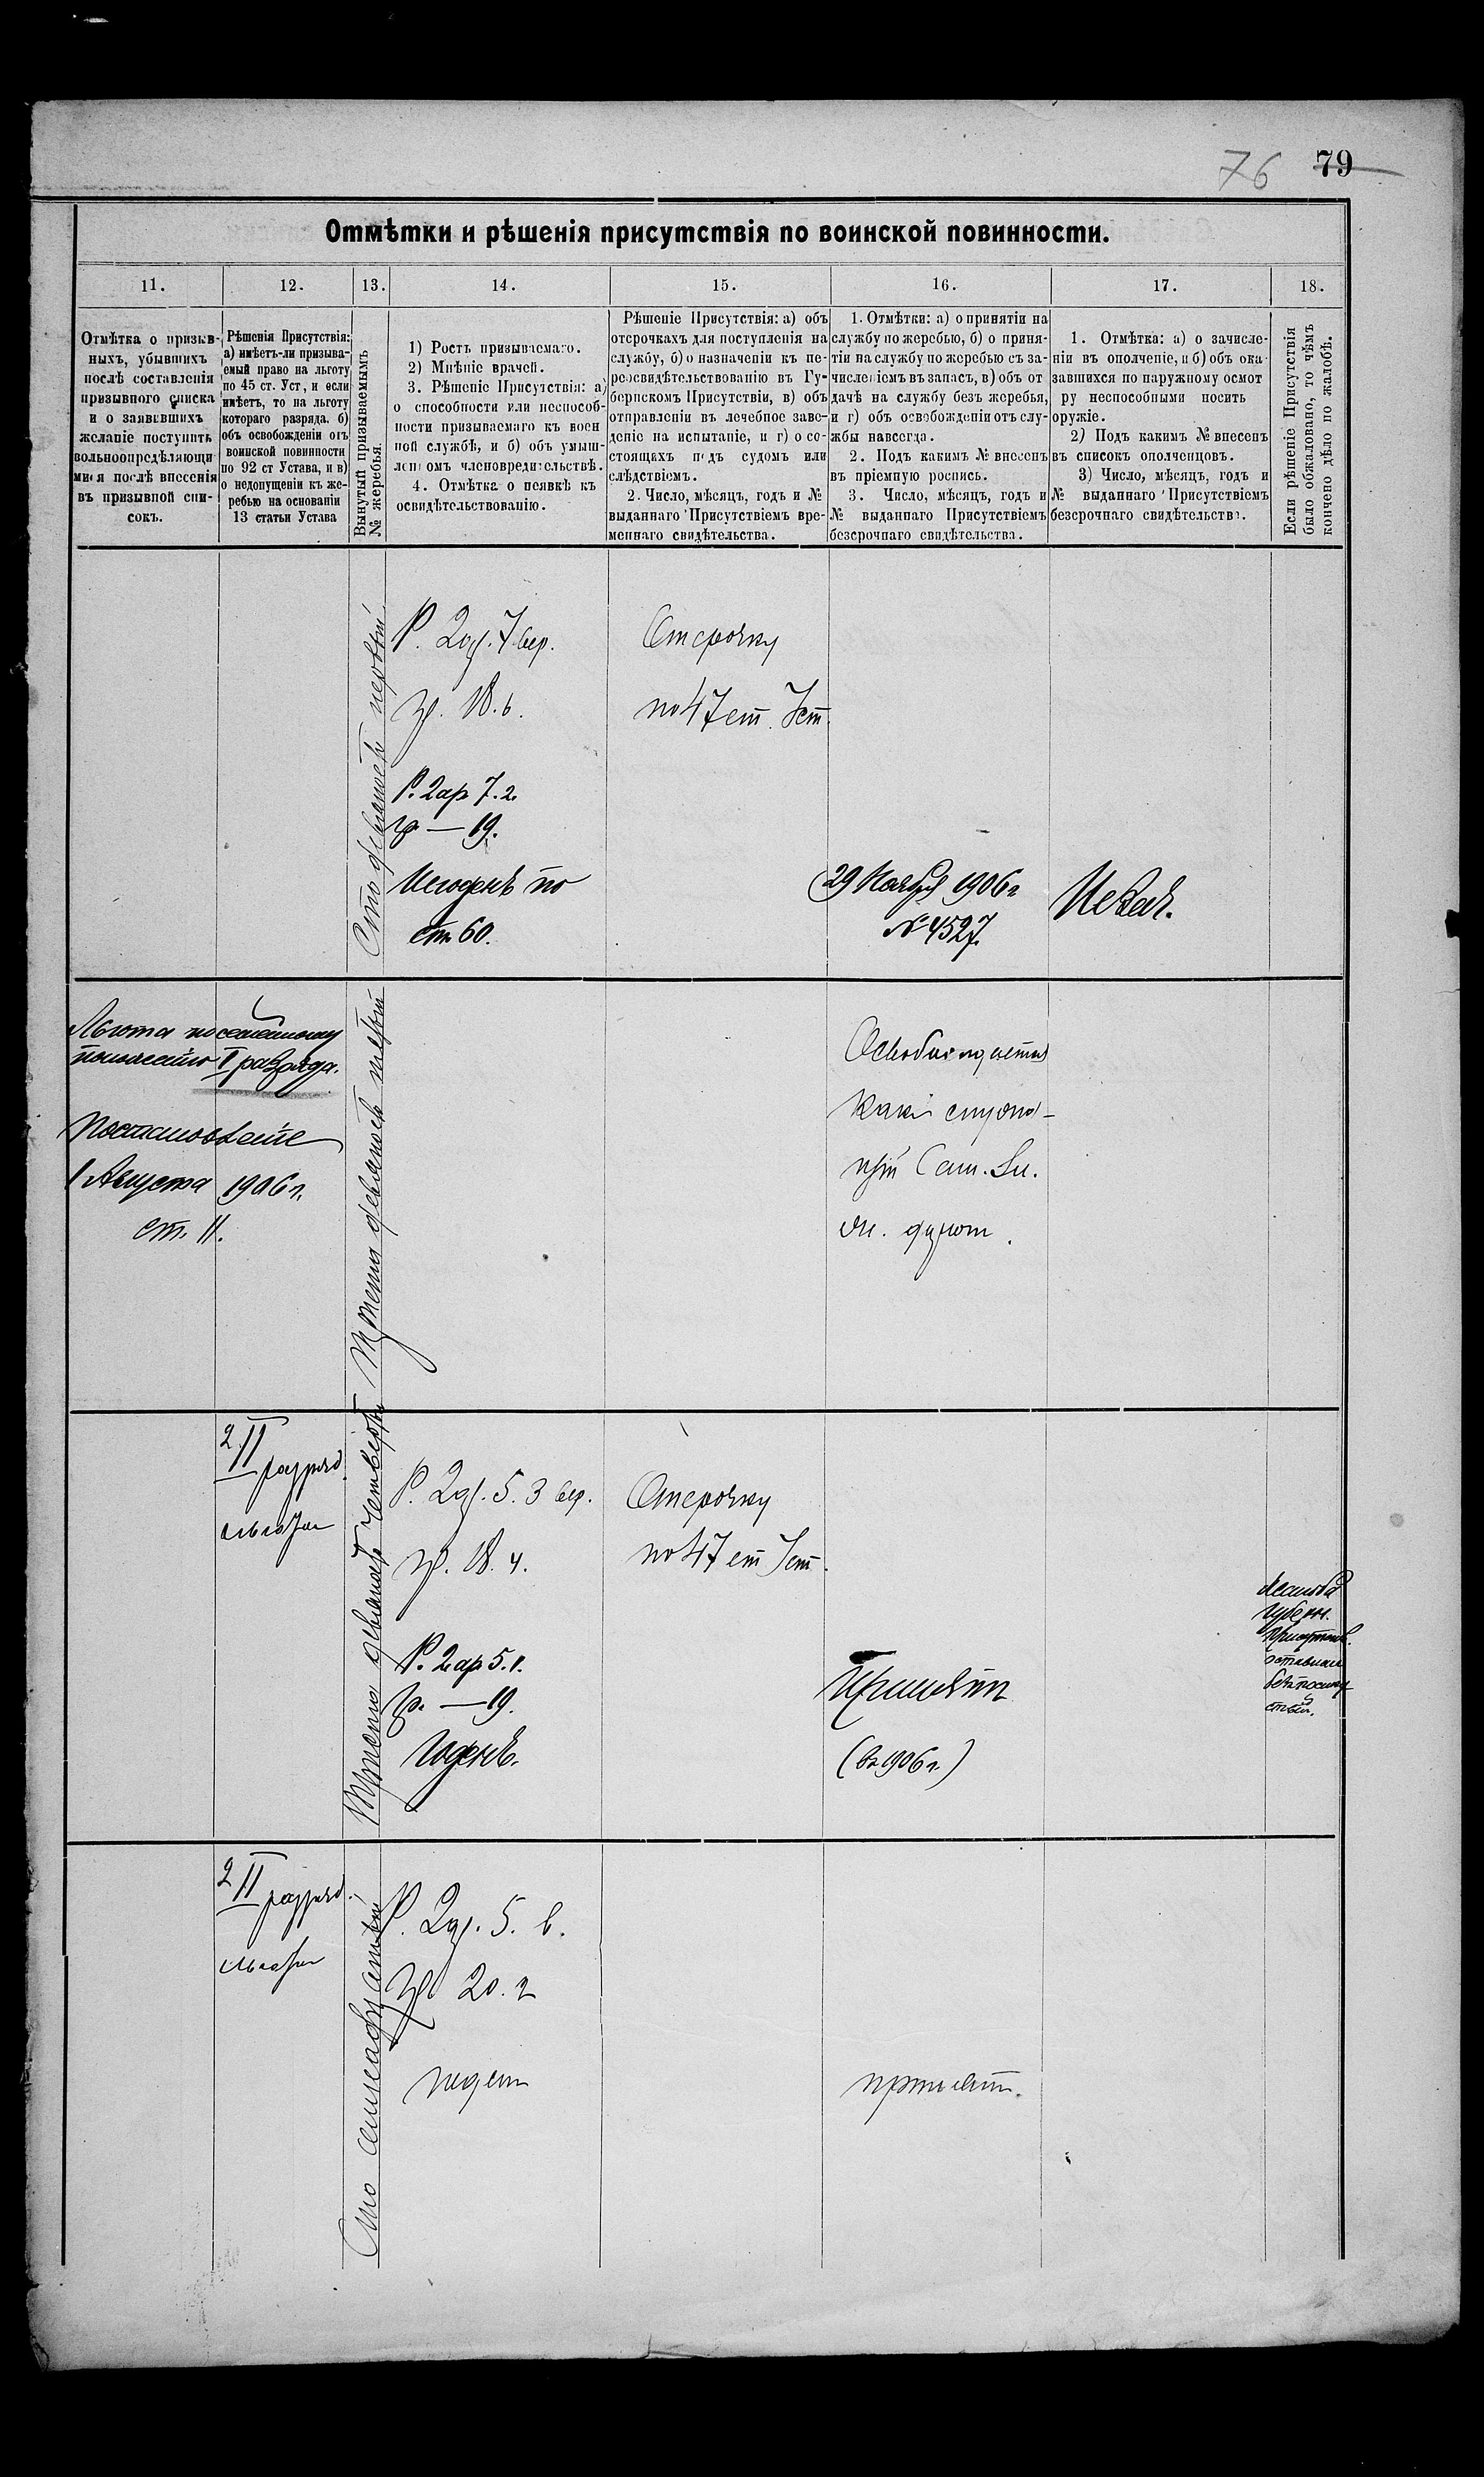 76 79
Отмѣтки и рѣшенія присутствія по воинской повинности.
11. 12. 13. 14. 15. 16. 17. 18.
Отмѣтка о призыв-
ныхъ, убывшихъ
послѣ составленія
призывного списка
и о заявившихъ
желаніе поступить
вольноопредѣляющи
мися послѣ внесенія
въ призывной спи-
сокъ.
Рѣшенія Присутствія:
а) имѣетъ-ли призыва-
емый право на льготу
по 45 ст. Уст, и если
имѣетъ, то на льготу
котораго разряда. б)
объ освобожденіи отъ
воинской повинности
по 92 ст Устава, и в)
о недопущеніи къ же-
ребью на основаніи
13 статьи Устава
Вынутый призываемымъ
№ жеребья.
1) Ростъ призываемаго.
2) Мнѣніе врачей.
3. Рѣшеніе Присутствія: а)
о способности или неспособ-
ности призываемаго къ воен
ной службѣ, и б) объ умыш-
леномъ членовредительствѣ.
4. Отмѣтка о неявкѣ къ
освидѣтельствованію.
Рѣшеніе Присутствія: а) объ
отсрочкахъ для поступленія на
службу, б) о назначеніи къ пе-
реосвидѣтельствованію въ Гу-
бернскомъ Присутствіи, в) объ
отправленіи въ лечебное заве-
деніе на испытаніе, и г) о со-
стоящихъ подъ судомъ или
слѣдствіемъ.
2. Число, мѣсяцъ, годъ и №
выданнаго Присутствіемъ вре-
меннаго свидѣтельства.
1. Отмѣтки: а) о принятіи на
службу по жеребью, б) о приня-
тіи на службу по жеребью съ за-
численіемъ въ запасъ, в) объ от
дачѣ на службу безъ жеребья,
и г) объ освобожденіи отъ слу-
жбы навсегда.
2. Подъ какимъ № внесенъ
въ пріемную роспись.
3. Число, мѣсяцъ, годъ и
№ выданнаго Присутствіемъ
безсрочнаго свидѣтельства.
1. Отмѣтка: а) о зачисле-
ніи въ ополченіе, и б) объ ока
завшихся по наружному осмот
ру неспособными носить
оружіе.
2) Подъ какимъ № внесенъ
въ списокъ ополченцовъ.
3) Число, мѣсяцъ, годъ и
№ выданнаго Присутствіемъ
безсрочнаго свидѣтельства.
Если рѣшеніе Присутствія
было обжаловано, то чѣмъ
кончено дѣло по жалобѣ.
Сто девяносто первый
Р. 2 ар. 7 вер.
гр. 18. в.
Р. 2 ар 7. 2.
гр — 19.
Негоденъ по
ст. 60.
Отсрочку
по 47 ст. Уст.
29 Ноября 1906 г
№ 4527.
Невач.
Льгота по семейному
положенію II разряда.
Постановленіе
1 Августа 1906 г.
ст. 11.
Триста девяносто
Освобождается
какъ
2 II разряд.
льгота
Триста девяносто четвертый
Р. 2 ар. 5. 3 вер.
гр. 18. 4.
Р. 2 ар 5. 1.
гр. — 19.
Годенъ.
Отсрочку
по 47 ст Уст.
Принятъ
(въ 1906 г.)
Жалоба
Губерн.
Присутств.
оставлена
безъ послед
ствій.
2 II разряд.
льгота
Сто семнадцатый
Р. 2 ар. 5. в.
гр 20. 2
годен
принят.